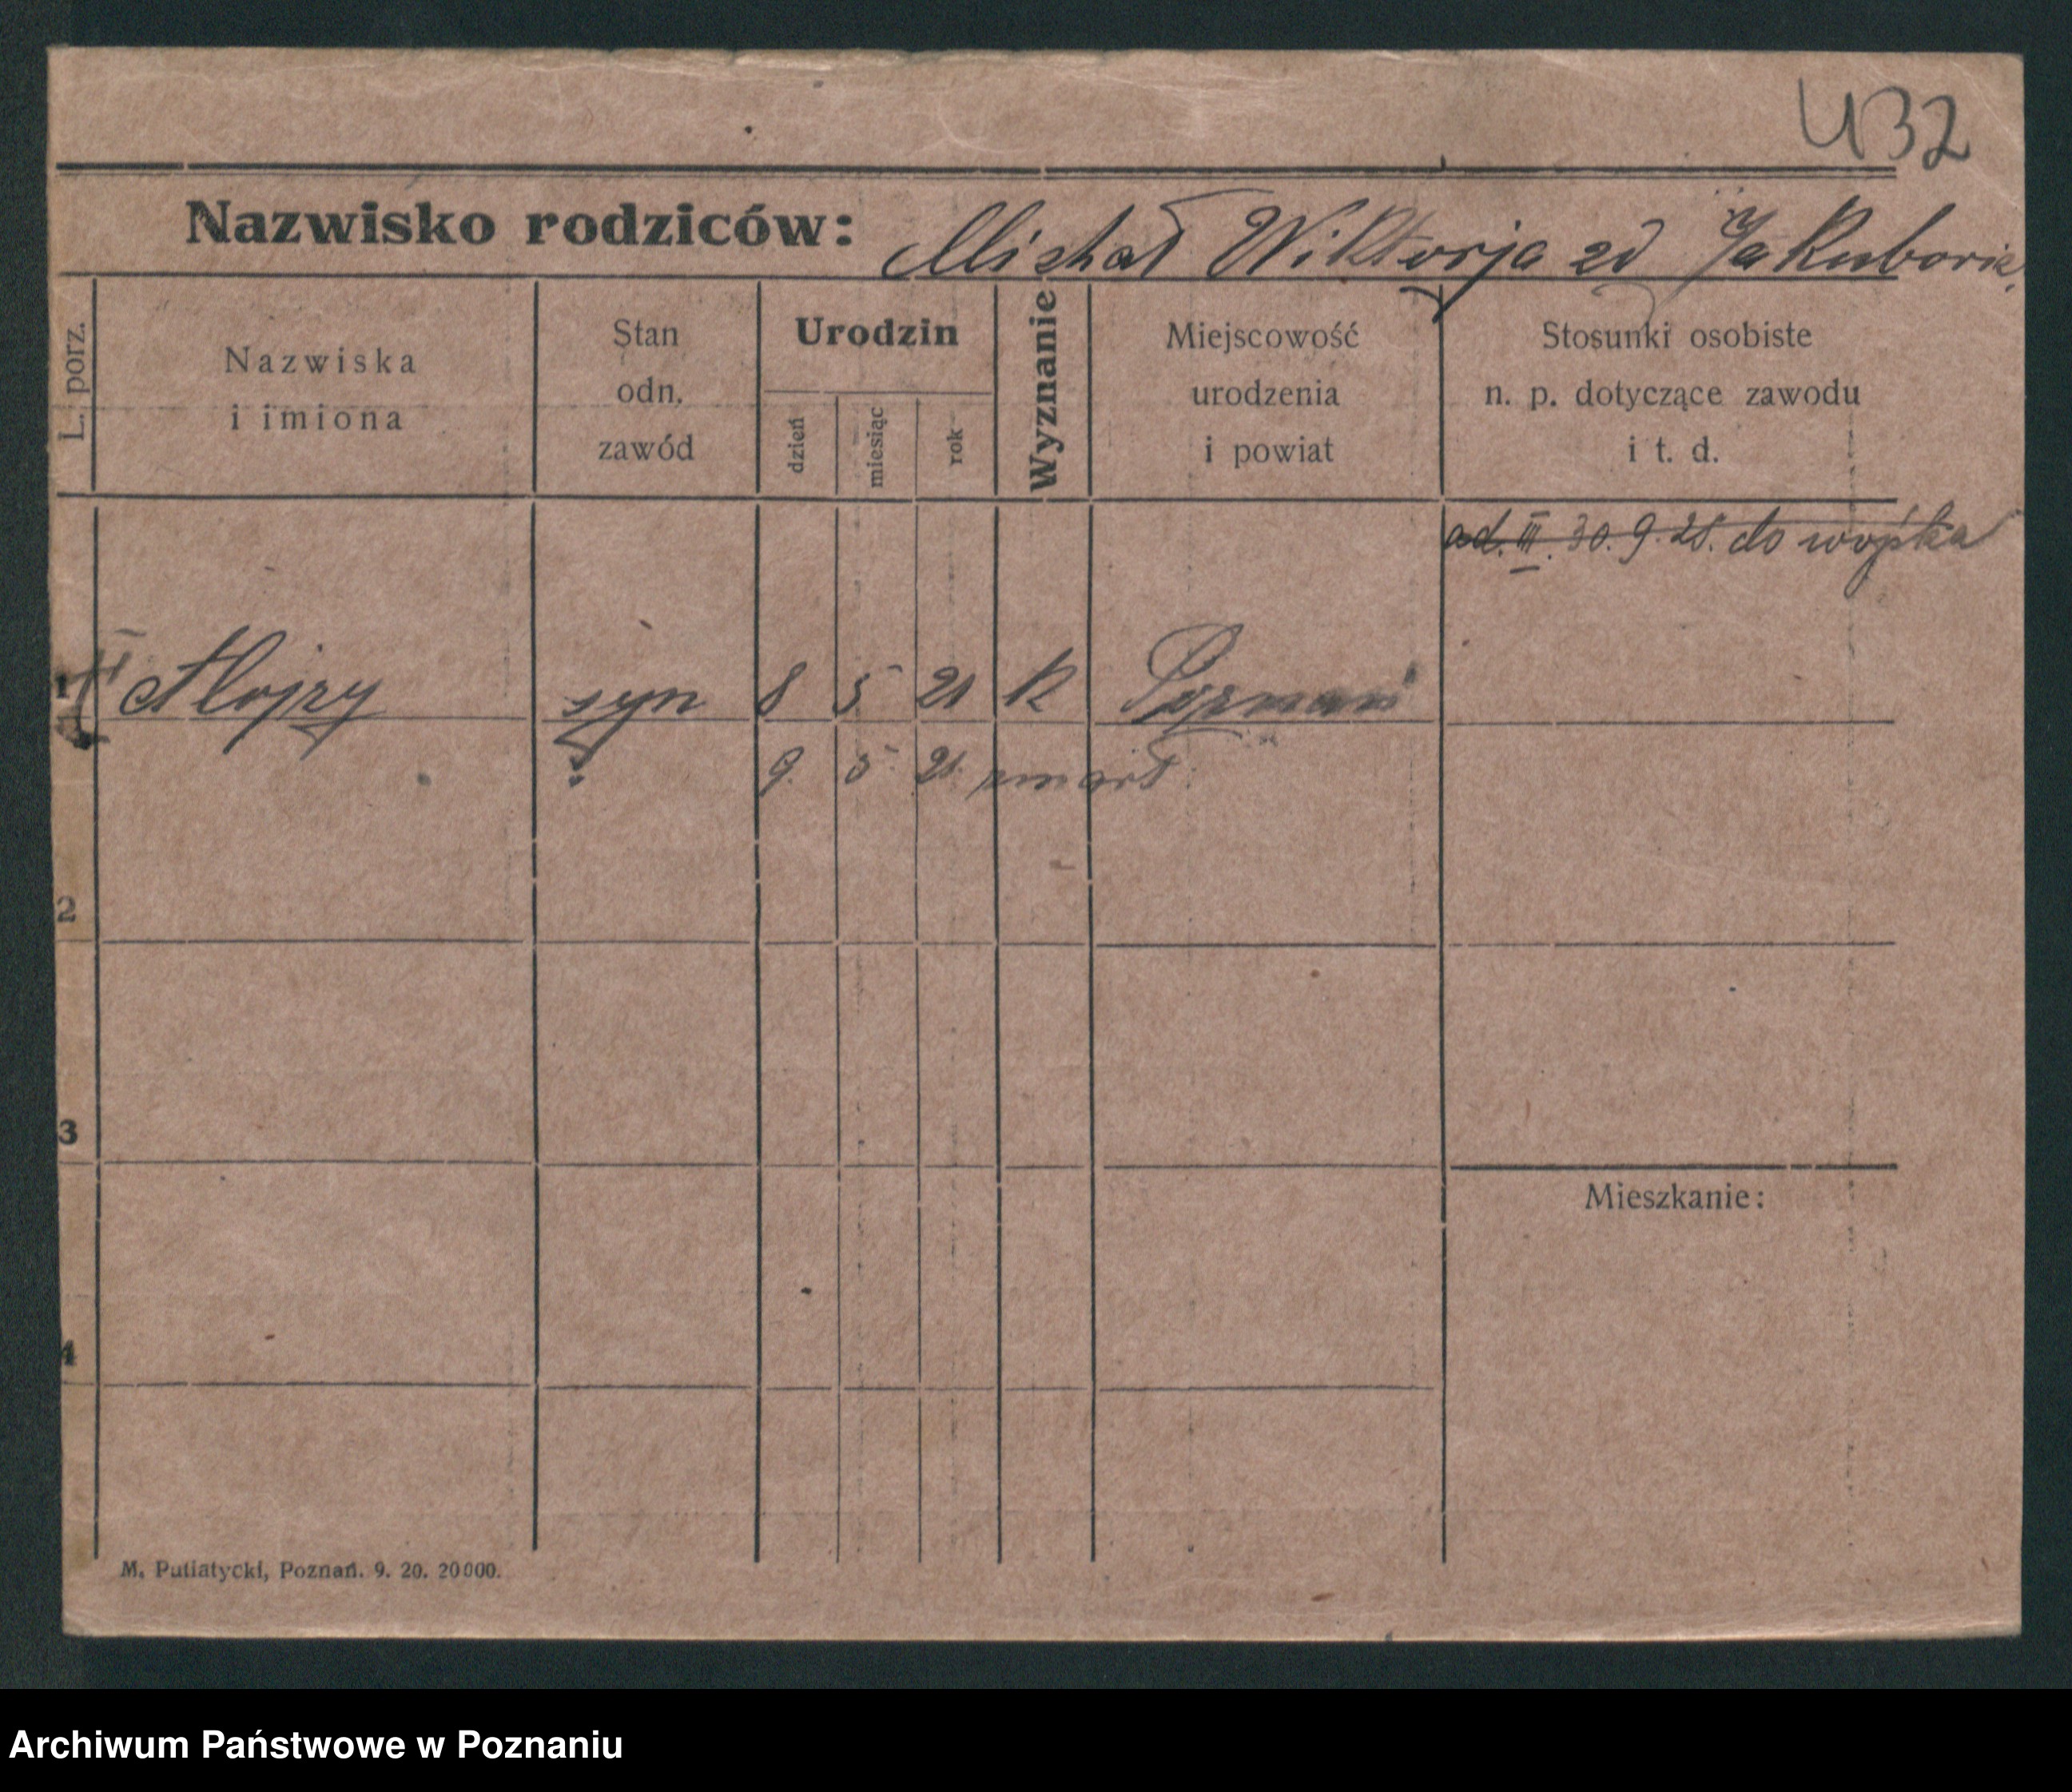 432
Nazwisko rodziców: Michał Wiktorja zd Jakubowic.
L. porz.
Nazwiska
i imiona
Stan
odn.
zawód
Urodzin
dzień
miesiąc
rok
Wyznanie
Miejscowość
urodzenia
i powiat
Stosunki osobiste
n. p. dotyczące zawodu
i t. d.
ad. III. 30. 9. 21. do wojska
1 Alojzy syn 8 5 21 k Poznań
9. 5. 21. zmarł.
2
3
Mieszkanie:
4
M. Putiatycki, Poznań. 9. 20. 20000.
Archiwum Państwowe w Poznaniu